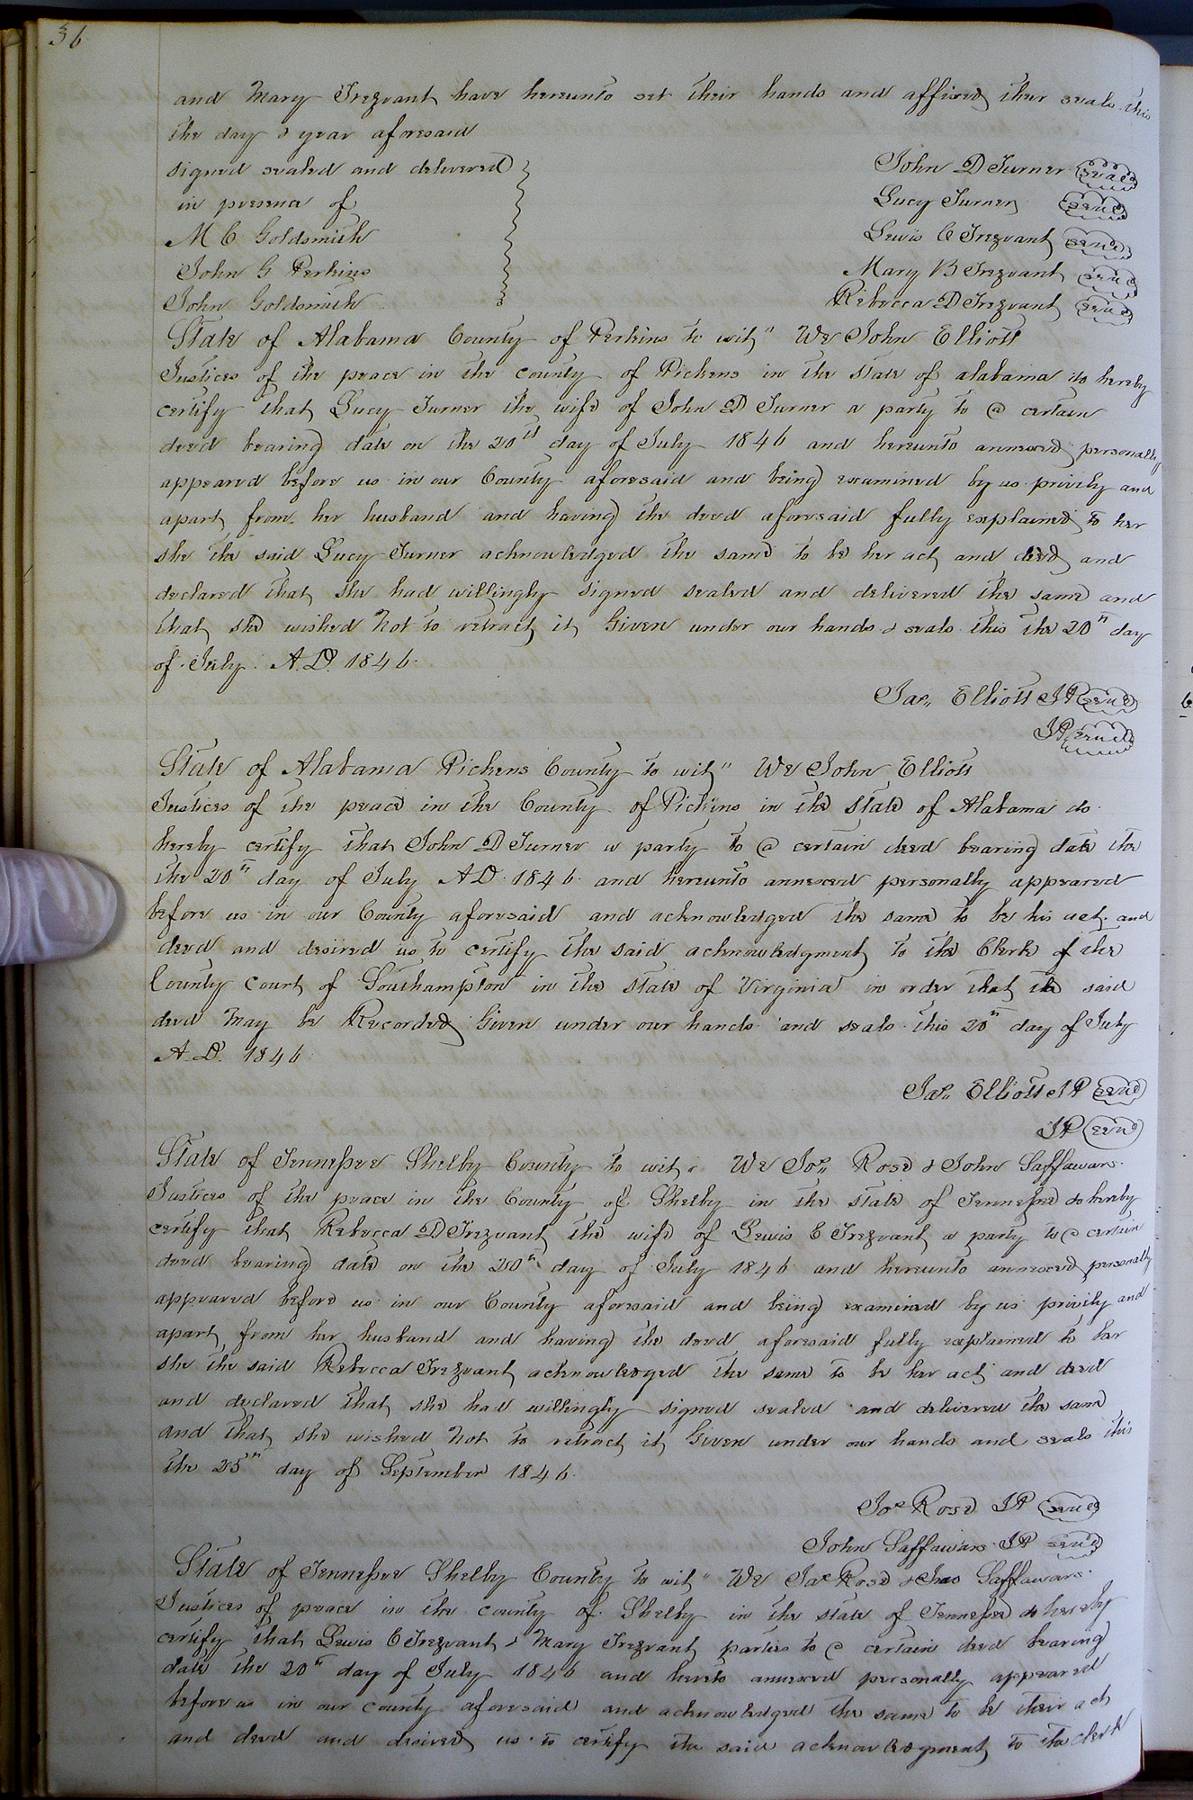 36
and Mary Trezvant have hereunto set their hands and affixed their seals this
the day & year aforesaid
signed sealed and delivered
in presence of
M C Goldsmith
John G Perkins
John Goldsmith
John D Turner seal
Lucy Turner seal
Lewis C Trezvant seal
Mary B Trezvant seal
Rebecca D Trezvant seal
State of Alabama County of Perkins to wit" We John Elliott
Justices of the peace in the county of Pickens in the state of alabama do hereby
certify that Lucy Turner the wife of John D Turner a party to a certain
deed bearing date on the 20th day of July 1846 and hereunto annexed personally
appeared before us in our County aforesaid and being examined by us privily and
apart from her husband and having the deed aforesaid fully explained to her
she the said Lucy Turner acknowledged the same to be her act and deed and
declared that she had willingly signed sealed and delivered the same and
that she wished Not to retract it Given under our hands & seals this the 20th day
of July A.D. 1846.
Jas. Elliott JP seal
JP seal
State of Alabama Pickens County to wit" We John Elliott
Justices of the peace in the County of Pickins in the state of Alabama do
hereby certify that John D Turner a party to a certain deed bearing date the
the 20th day of July A D 1846 and hereunto annexed personally appeared
before us in our County aforesaid and acknowledged the same to be his act and
deed and desired us to certify the said acknowledgment to the Clerk of the
County Court of Southampton in the state of Virginia in order that the said
deed May be Recorded Given under our hands and seals this 20th day of July
A.D. 1846
Jas. Elliott JP seal
JP seal
State of Tennessee Shelby County to wit. We Jos. Rose & John Saffawans.
Justices of the peace in the County of Shelby in the state of Tennessee do hereby
certify that Rebecca D Trezvant the wife of Lewis C Trezvant a party to a certain
deed bearing date on the 20th day of July 1846 and hereunto annexed personally
appeared before us in our County aforesaid and being examined by us privily and
apart from her husband and having the deed aforesaid fully explained to her
she the said Rebecca Trezvant acknowledged the same to be her act and deed
and declared that she had willingly signed sealed and delivered the same
and that she wished Not to retract it Given under our hands and seals this
the 25th day of September 1846.
Jos Rose JP seal
John Saffawans JP seal
State of Tennessee Shelby County to wit" We Jas Rose & Jno Saffawans.
Justices of peace in the county of Shelby in the state of Tennessee do hereby
certify that Lewis C Trezvant & Mary Trezvant parties to a certain deed bearing
date the 20th day of July 1846 and hereto annexed personally appeared
before us in our county aforesaid and acknowledged the same to be their act
and deed and desired us to certify the said acknowledgment to the clerk